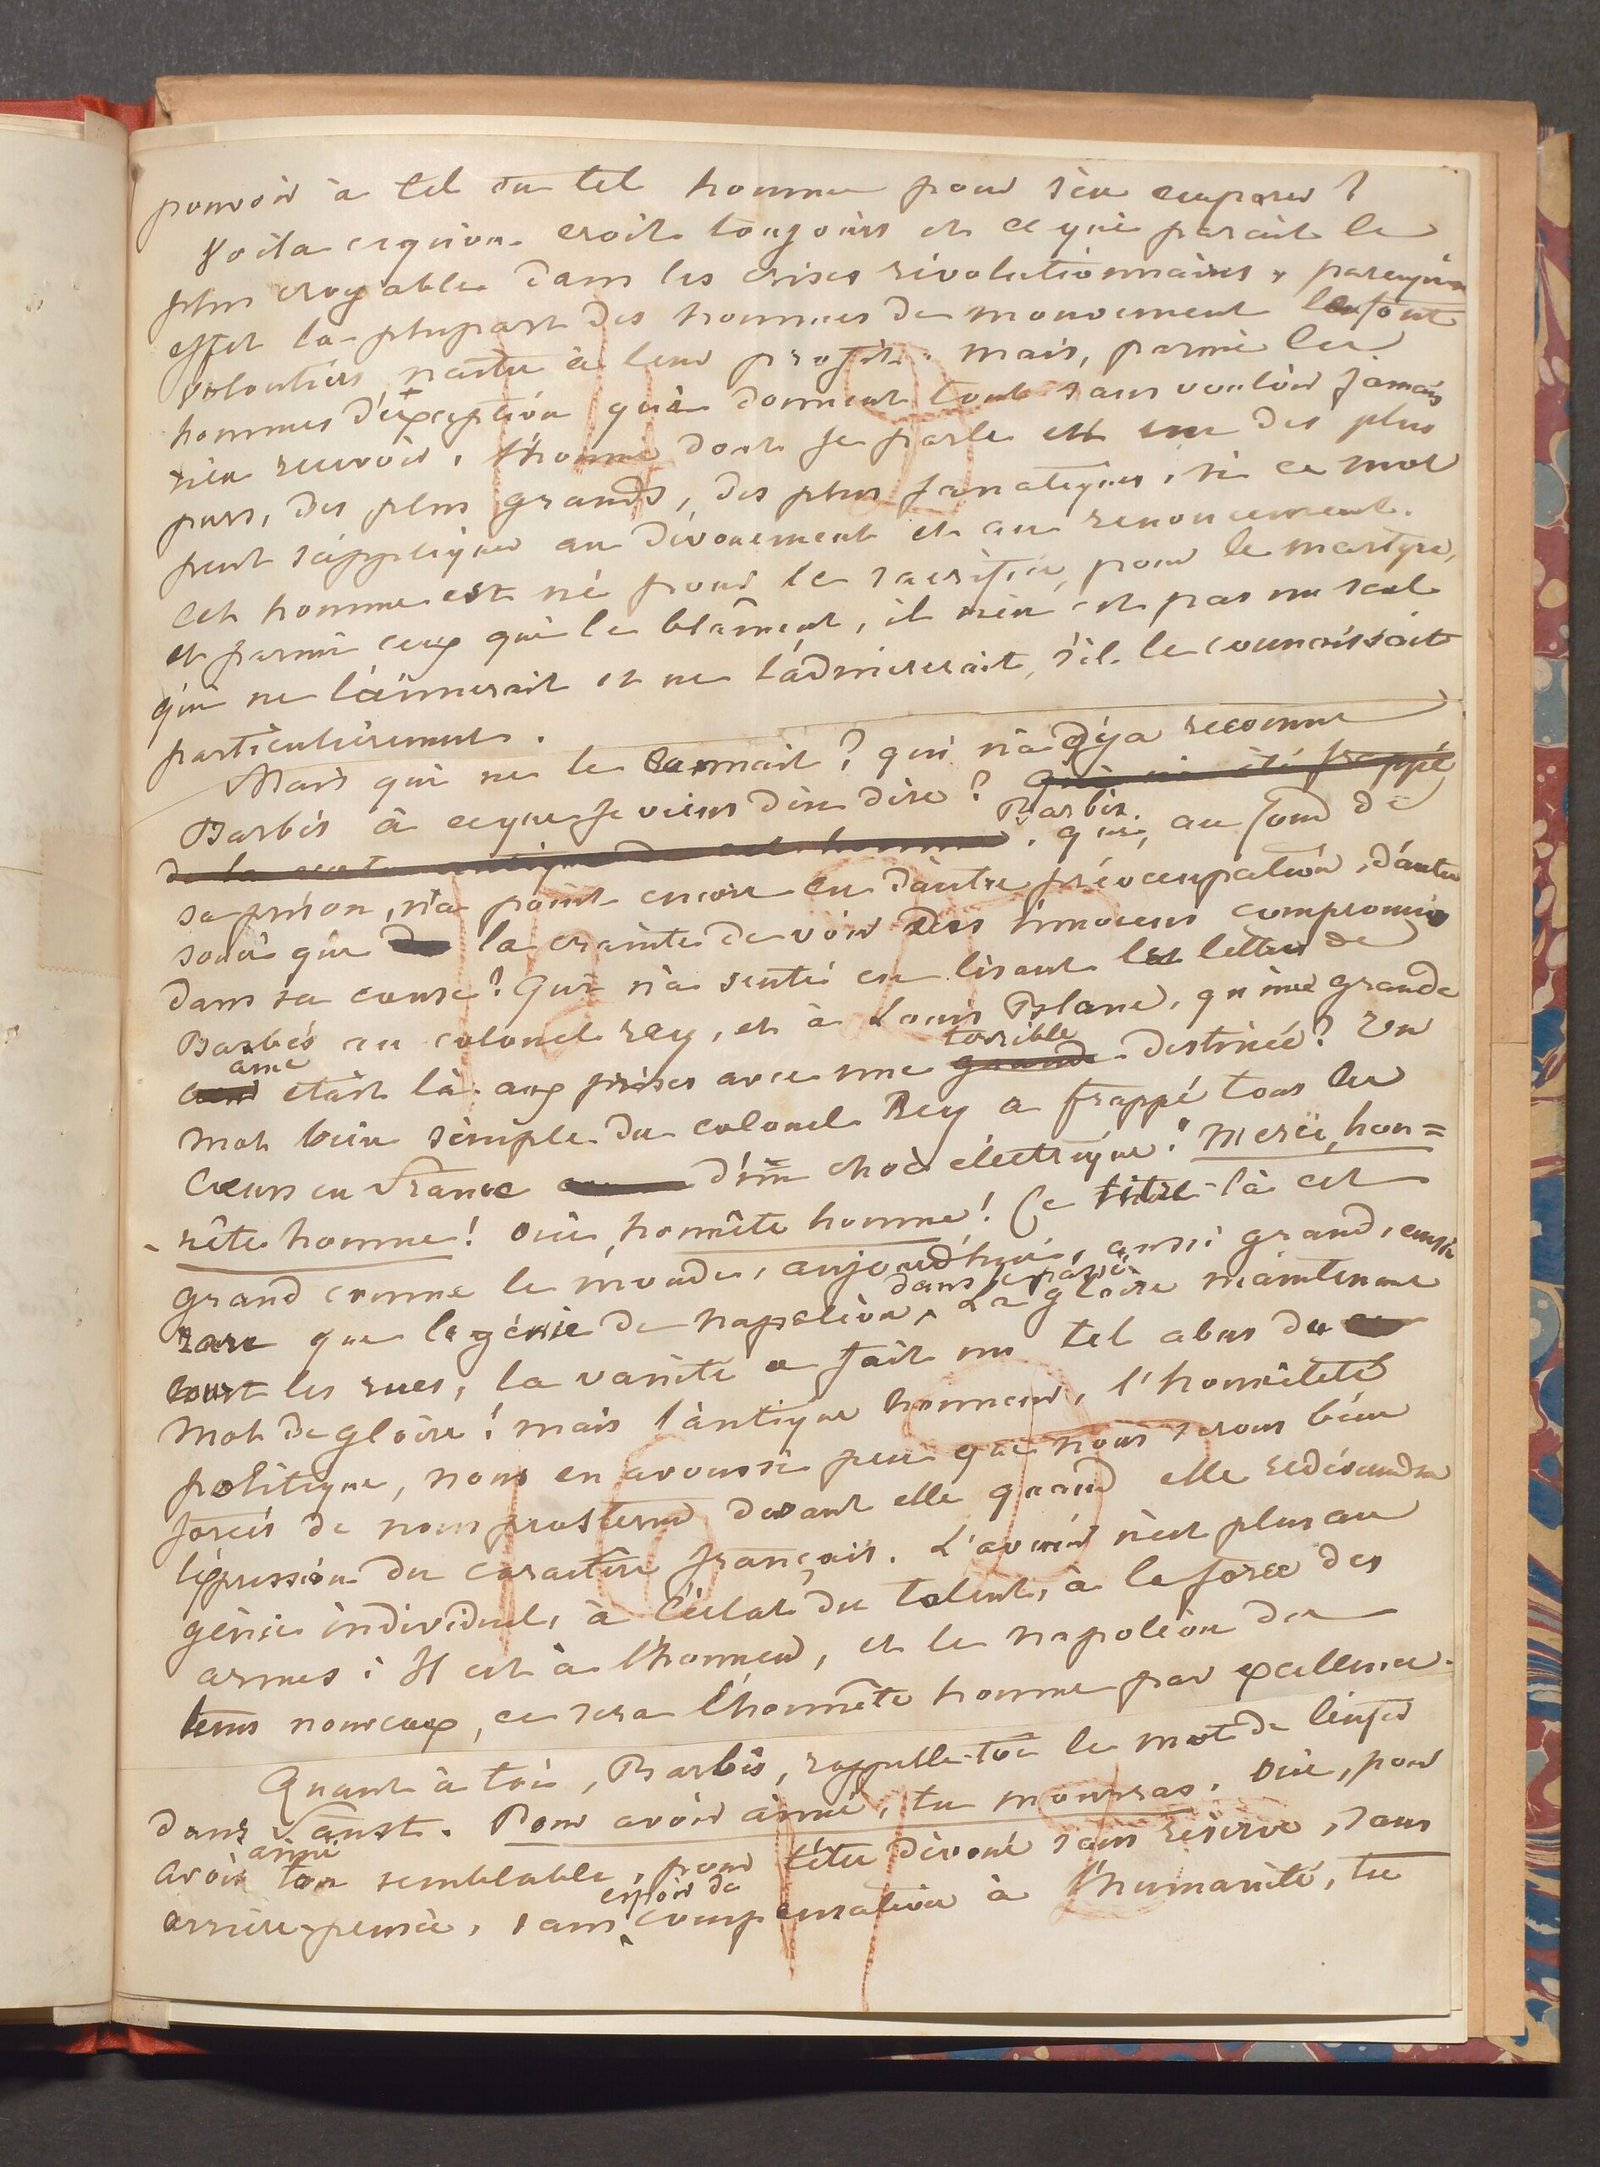 pouvoir à tel ou tel homme pour s'en emparer ?
Voila cequ'on croit toujours et ce qui parait le
plus croyable dans les crises révolutionnaires, parcequ'en
effet la plupart des hommes de mouvement le font
volontiers naitre à leur profit. mais, parmi les
hommes d'exception qui donnent tout sans vouloir jamais
rien recevoir, l'homme dont je parle est un des plus
purs, des plus grands, des plus fanatiques, si ce mot
peut s'appliquer au dévouement et au renoncement.
Cet homme est né pour le sacrifice, pour le martyre,
et parmi ceux qui le blâment, il n'en est pas un seul
qui ne l'aimerait et ne l'admirerait, s'il le connaissait
particulièrement.
Mais qui ne le connait ? qui n'a déja reconnu
Barbès à ceque je viens d'en dire ? Qui n'a été frappé
de la vertu antique de cet homme Barbès. qui, au fond de
sa prison, n'a point encore eu d'autre préoccupation, d'autre
souci que la crainte de voir des innocens compromis
dans sa cause ? Qui n'a senti en lisant les lettres de
Barbès au colonel rey, et à Louis Blanc, qu'une grande
âme était là aux prises avec une grande terrible destinée ? Un
mot bien simple du colonel Rey a frappé tous les
Cœurs en France d'un choc électrique : Merci, hon=
-nête homme ! oui, honnête homme ! Ce titre-là est
grand comme le monde, aujourd'hui, aussi grand, aussi
rare que le génie de napoléon dans le passé. La gloire maintenant
court les rues, la vanité a fait un tel abus du
mot de gloire ! mais l'antique honneur, l'honnêteté
politique, nous en avons si peu que nous serons bien
forcés de nous prosterner devant elle quand elle redeviendra
l'expression du caractère français. L'avenir n'est plus au
génie individuel, à l'éclat du talent, à la force des
armes : Il est à l'honneur, et le napoléon des
tems nouveaux, ce sera l'honnête homme par excellence.
Quant à toi, Barbès, rappelle-toi le mot de l'enfer
dans Faust. Pour avoir aimé, tu mourras. Oui, pour
avoir aimé ton semblable, pour t'être dévoué sans réserve, sans
arrière-pensée, sans espoir de compensation à l'humanité, tu